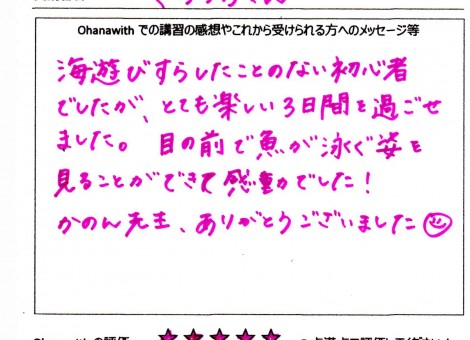 Ohanawith での講習の感想やこれから受けられる方へのメッセージ等
海遊びすらしたことのない初心者
でしたが、とても楽しい3日間を過ごせ
ました。目の前で魚が泳ぐ姿を
見ることができて感動でした!
かのん先生、ありがとうございました
★★★★★